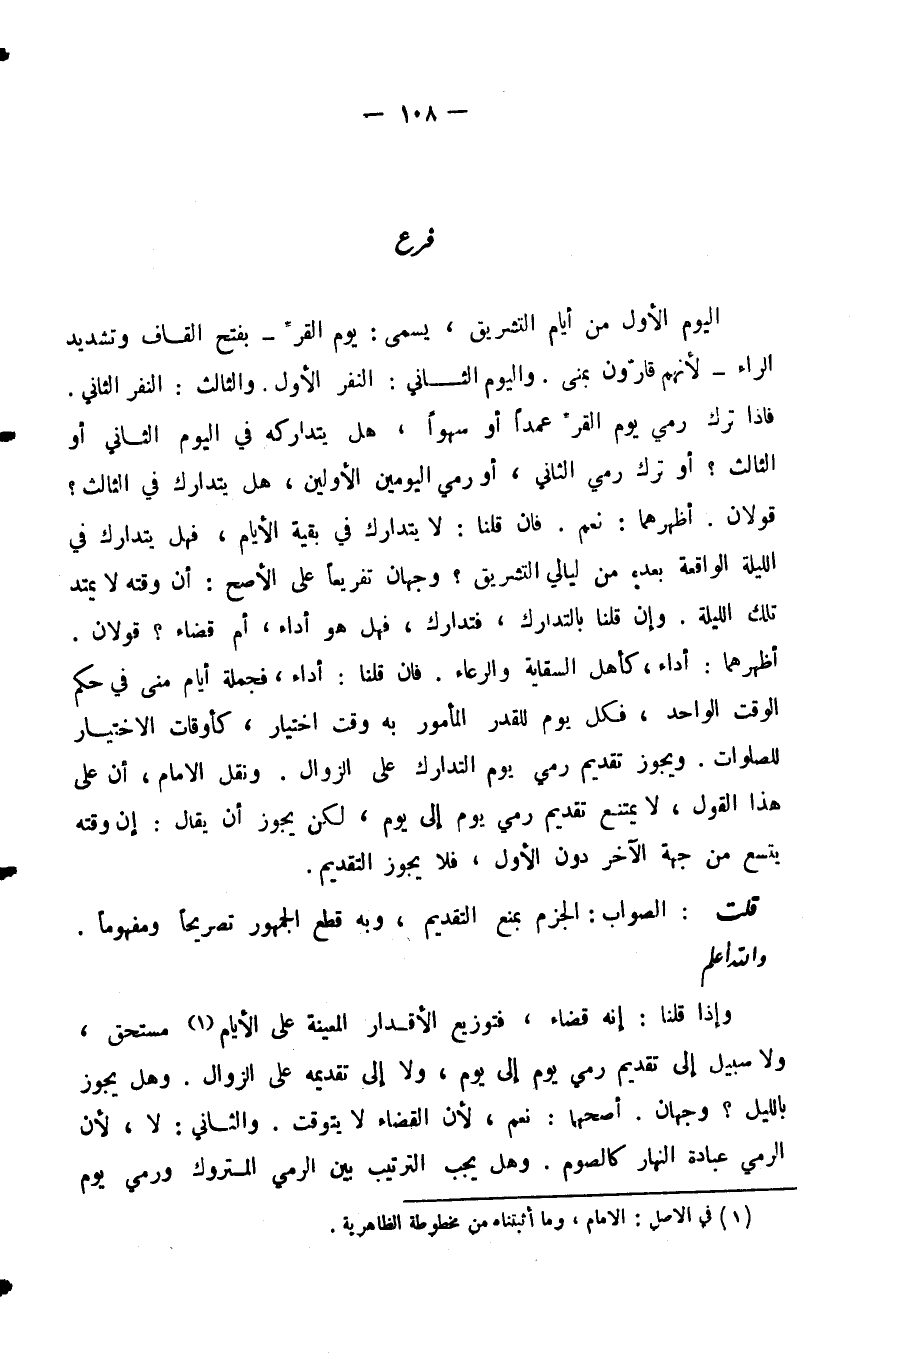 — ١٠٨ —
فرع
اليوم الأول من أيام التشريق ، يسمى : يوم القرّ – بفتح القاف وتشديد
الراء – لأنهم قارّون بمنى . واليوم الثاني : النفر الأول . والثالث : النفر الثاني .
فاذا ترك رمي يوم القرّ عمداً أو سهواً ، هل يتداركه في اليوم الثاني أو
الثالث ؟ أو ترك رمي الثاني ، أو رمي اليومين الأولين ، هل يتدارك في الثالث ؟
قولان . أظهرهما : نعم . فان قلنا : لا يتدارك في بقية الأيام ، فهل يتدارك في
الليلة الواقعة بعده من ليالي التشريق ؟ وجهان تفريعاً على الأصح : أن وقته لا يمتد
تلك الليلة . وإن قلنا بالتدارك ، فتدارك ، فهل هو أداء ، أم قضاء ؟ قولان .
أظهرهما : أداء ، كأهل السقاية والرعاء . فان قلنا : أداء ، فجملة أيام منى في حكم
الوقت الواحد ، فكل يوم للقدر المأمور به وقت اختيار ، كأوقات الاختيار
للصلوات . ويجوز تقديم رمي يوم التدارك على الزوال . ونقل الامام ، أن على
هذا القول ، لا يمتنع تقديم رمي يوم إلى يوم ، لكن يجوز أن يقال : إن وقته
يتسع من جهة الآخر دون الأول ، فلا يجوز التقديم .
قلت : الصواب : الجزم بمنع التقديم ، وبه قطع الجمهور تصريحاً ومفهوماً .
والله أعلم
وإذا قلنا : إنه قضاء ، فتوزيع الأقدار المعينة على الأيام (١) مستحق ،
ولا سبيل إلى تقديم رمي يوم إلى يوم ، ولا إلى تقديمه على الزوال . وهل يجوز
بالليل ؟ وجهان . أصحها : نعم ، لأن القضاء لا يتوقت . والثاني : لا ، لأن
الرمي عبادة النهار كالصوم . وهل يجب الترتيب بين الرمي المتروك ورمي يوم
(١) في الاصل : الامام ، وما أثبتناه من مخطوطة الظاهرية .